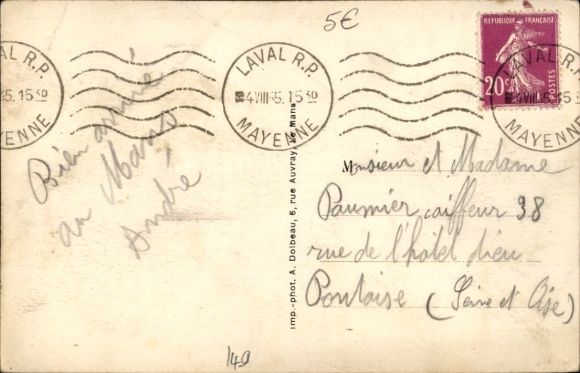 5€
LAVAL R.P.
4 VIII 35. 15 30
MAYENNE
LAVAL R.P.
35. 15 30
MAYENNE
REPUBLIQUE FRANÇAISE
20c
POSTES
LAVAL R.P.
4 VIII 35. 15 30
MAYENNE
Bien arrivé
au Mans
André
Imp.-phot. A. Dolbeau, 6, rue Auvray, Le Mans
Monsieur et Madame
Paumier coiffeur 38
rue de l'hôtel dieu
Pontoise (Seine et Oise)
149